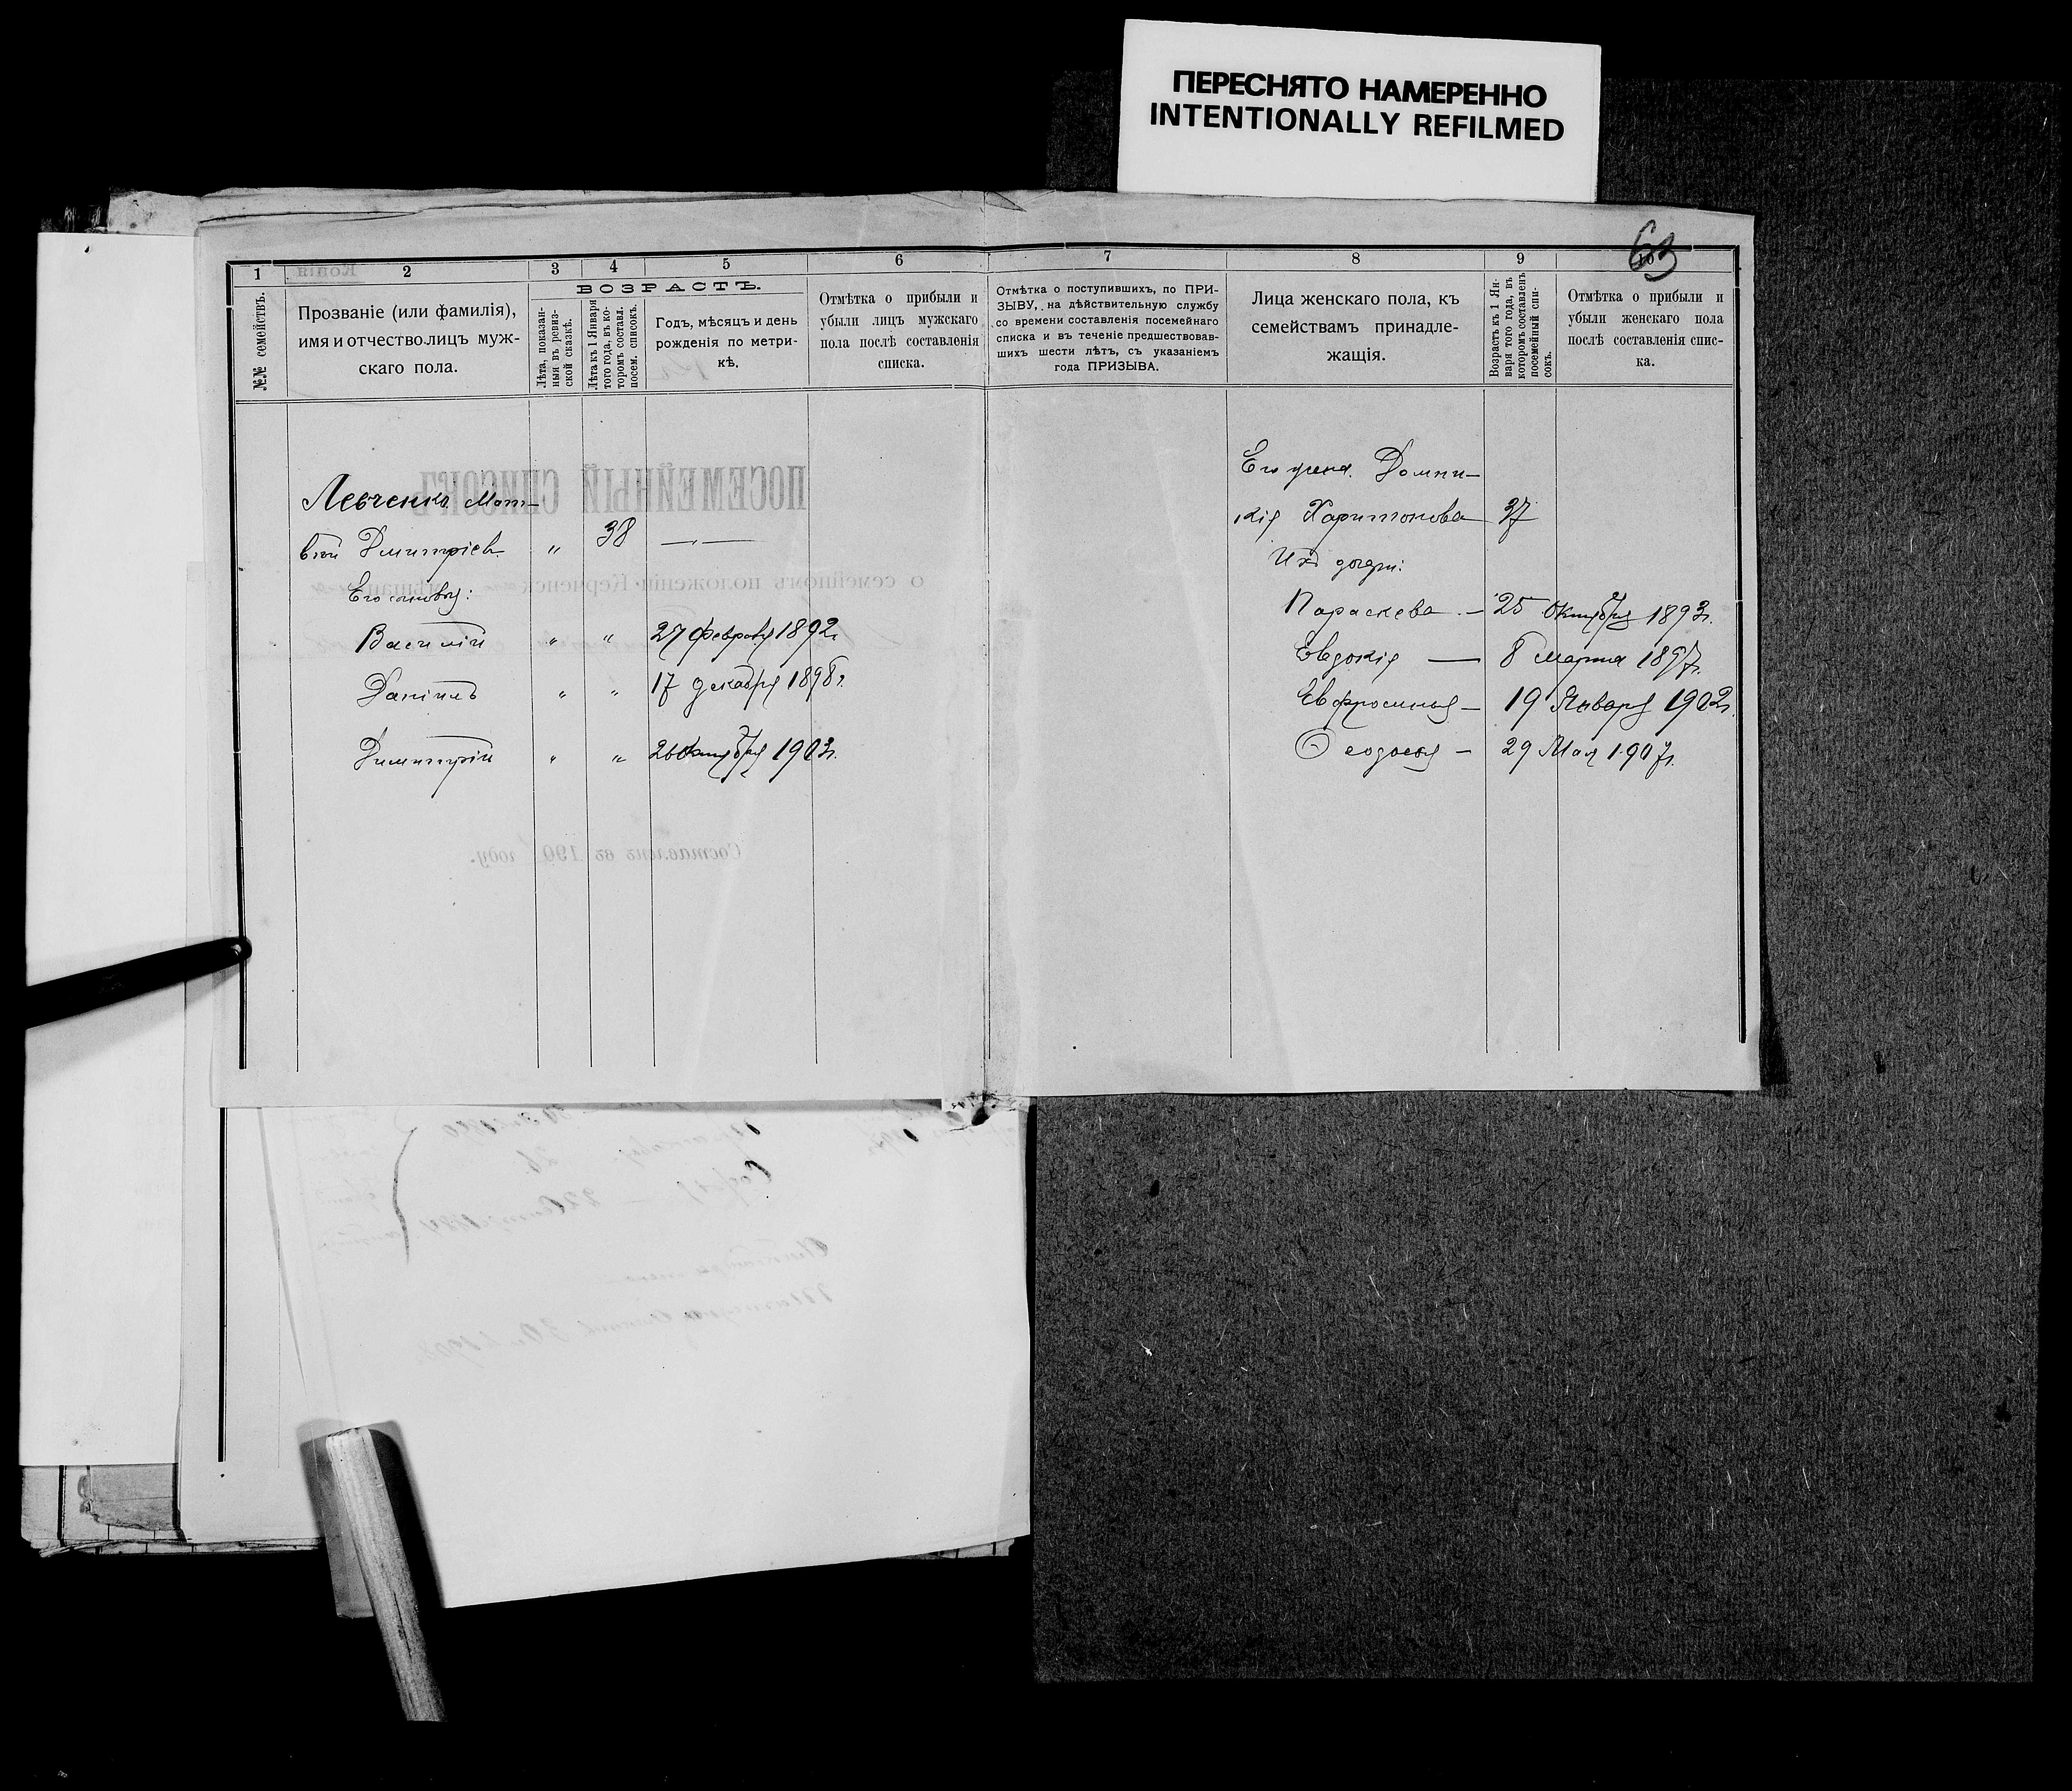 ПЕРЕСНЯТО НАМЕРЕННО
INTENTIONALLY REFILMED
63
1 2 3 4 5 6 7 8 9 10
№№ семействъ.
Прозваніе (или фамилія),
имя и отчество лицъ муж-
скаго пола.
ВОЗРАСТЪ.
Лѣта, показан-
ныя въ ревиз-
ской сказкѣ.
Лѣта къ 1 Января
того года, въ ко-
торомъ составл.
посем. списокъ.
Годъ, мѣсяцъ и день
рожденія по метри-
кѣ.
Отмѣтка о прибыли и
убыли лицъ мужскаго
пола послѣ составленія
списка.
Отмѣтка о поступившихъ, по ПРИ-
ЗЫВУ, на дѣйствительную службу
со времени составленія посемейнаго
списка и въ теченіе предшествовав-
шихъ шести лѣтъ, съ указаніемъ
года ПРИЗЫВА.
Лица женскаго пола, къ
семействамъ принадле-
жащія.
Возрастъ къ 1 Ян-
варя того года, въ
которомъ составленъ
посемейный спи-
сокъ.
Отмѣтка о прибыли и
убыли женскаго пола
послѣ составленія спис-
ка.
Левченко Мат-
вѣй Дмитріев. " 38 — " —
Его сыновья:
Василий " " 27 Февраля 1892 г.
Даніилъ " " 17 декабря 1898 г.
Димитрій " " 26 Октября 1903 г.
Его жена Домни-
кія Харитонова 37
Ихъ дочери:
Параскева — 25 Октября 1893 г.
Евдокія — 8 марта 1897 г.
Евфросинья — 19 Января 1902 г.
Ѳеодосья — 29 Мая 1907 г.
Копія
ПОСЕМЕЙНЫЙ СПИСОКЪ
о семейномъ положеніи Керченск
Составленъ въ 190 году.